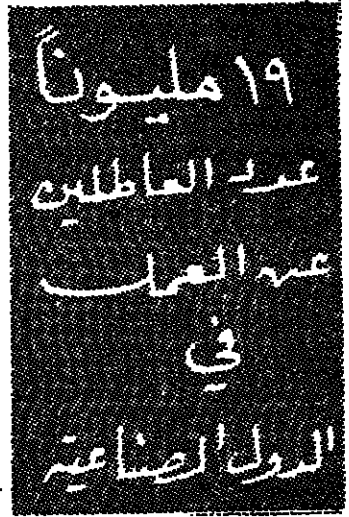 ١٩ مليوناً
عدد العاطلين
عن العمل
في
الدول الصناعية